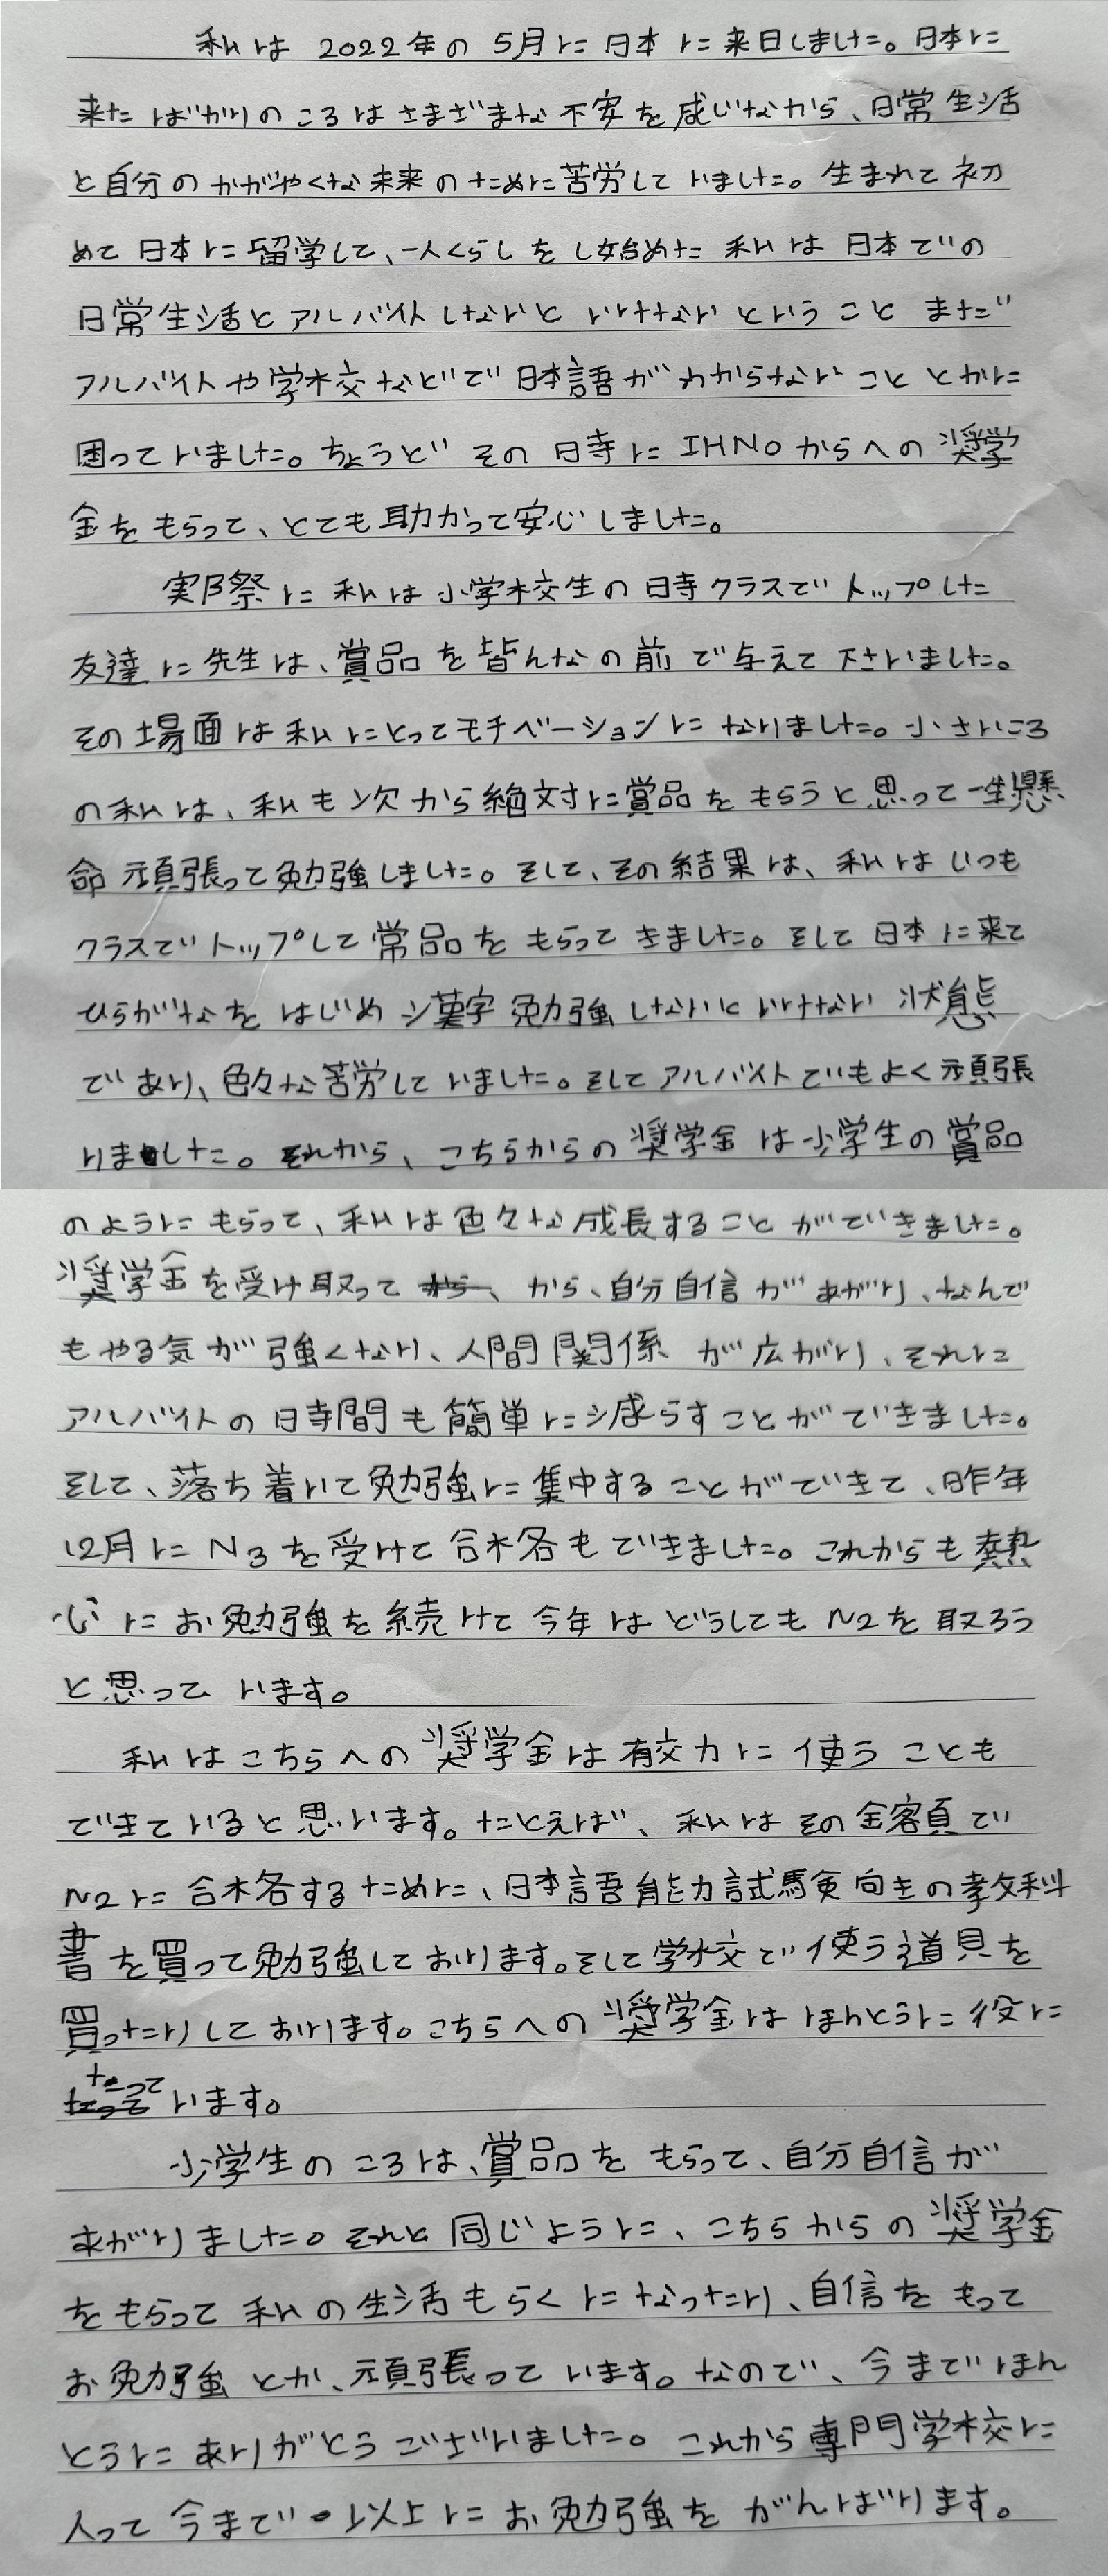 私は 2022年の 5月に日本に来日しました。日本に
来たばかりのころはさまざまな不安を感じながら、日常生活
と自分のかがやくな未来のために苦労していました。生まれて初
めて日本に留学して、一人くらしをし始めた私は日本での
日常生活とアルバイトしないといけないということ まだ
アルバイトや学校などで日本語がわからないこととかに
困っていました。ちょうどその時にIHNOからへの奨学
金をもらって、とても助かって安心しました。
実際に私は小学校生の時クラスでトップした
友達に先生は、賞品を皆んなの前で与えて下さいました。
その場面は私にとってモチベーションになりました。小さいころ
の私は、私も次から絶対に賞品をもらうと思って一生懸
命頑張って勉強しました。そして、その結果は、私はいつも
クラスでトップして常品をもらってきました。そして日本に来て
ひらがなをはじめ漢字勉強しないといけない状態
であり、色々な苦労していました。そしてアルバイトでもよく頑張
りました。それから、こちらからの奨学金は小学生の賞品
のようにもらって、私は色々な成長することができました。
奨学金を受け取って から、自分自信があがり、なんで
もやる気が強くなり、人間関係が広がり、それに
アルバイトの時間も簡単に減らすことができました。
そして、落ち着いて勉強に集中することができて、昨年
12月にN3を受けて合格もできました。これからも熱
心にお勉強を続けて今年はどうしてもN2を取ろう
と思っています。
私はこちらへの奨学金は有効に使うことも
できていると思います。たとえば、私はその金額で
N2に合格するために、日本語能力試験向きの教科
書を買って勉強しております。そして学校で使う道具を
買ったりしております。こちらへの奨学金はほんとうに役に
たって います。
小学生のころは、賞品をもらって、自分自信が
あがりました。それと同じように、こちらからの奨学金
をもらって私の生活もらくになったり、自信をもって
お勉強とか、頑張っています。なので、今までほん
とうにありがとうございました。これから専門学校に
入って今まで以上にお勉強をがんばります。